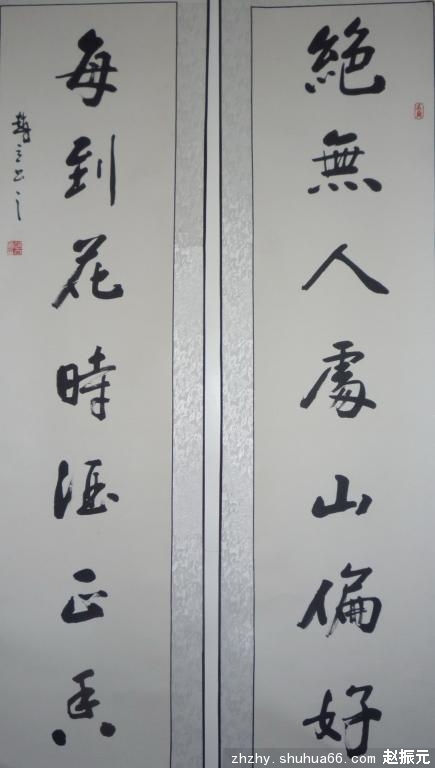 絕無人處山偏好
每到花時酒正香
zhzhy.shuhua66.com 赵振元